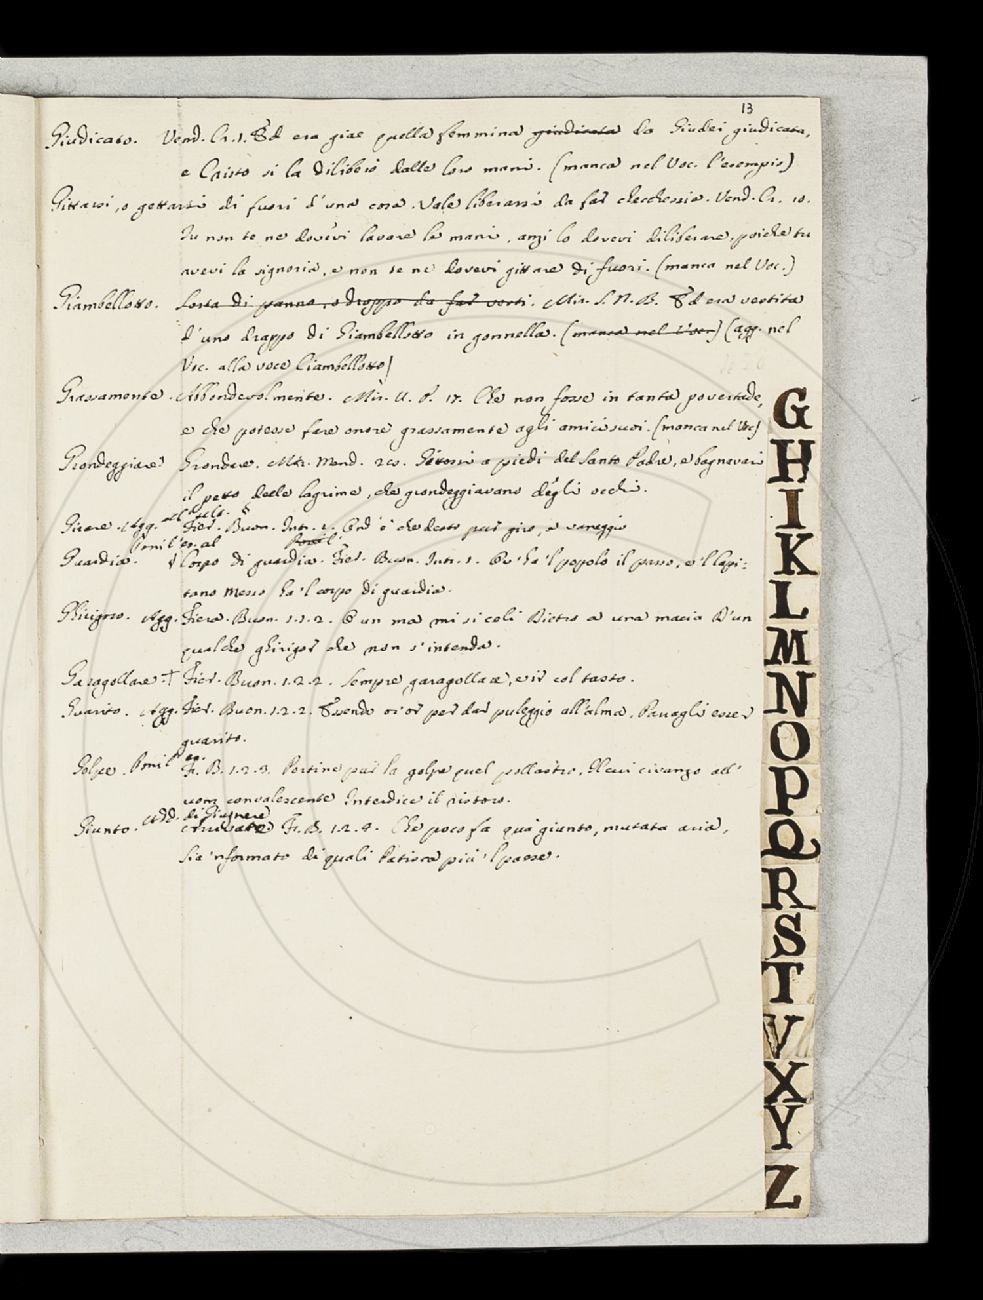 13
Giudicato. Vend. Cr. 1. Ed era giae quella femmina giudicata da Giudei giudicata,
e Cristo si la diliberò dalle loro mani. (manca nel Voc. l'esempio)
Gittarsi, o gettarsi di fuori d'una cosa. Vale liberarsi da far checchessia. Vend. Cr. 10.
Tu non te ne dovevi lavare le mani, anzi lo dovevi diliberare, poiche tu
avevi la signoria, e non te ne dovevi gittare di fuori. (manca nel Voc.)
Giambellotto. Sorta di panno, o drappo da far vesti. Mir. S. M. B. Ed era vestita
d'uno drappo di Giambellotto in gonnella. (manca nel Voc.) (agg. nel
Voc. alla voce Ciambellotto)
Grassamente. Abbondevolmente. Mir. 17. Che non fosse in tanta povertade,
e che potesse fare onore grassamente agli amici suoi. (manca nel Voc.)
Grondeggiare Grondare. Mir. Mad. a piedi del Santo Padre, e bagnavasi
il petto delle lagrime, che grondeggiavano dègli occhi.
Girare. Agg. Fier. Buon. Int. è che desto pur giro, e vaneggio
Poni l'es. al
Guardia. § Corpo di guardia. Fier. Buon. Intr. 1. ha 'l popolo il passo, e 'l Capi-
tano messo ha 'l corpo di guardia.
Ghirigoro. Agg. Fiera. Buon. 1.2.2. E un ma mi si celi Dietro a una macia D'un
qualche ghirigor che non s'intenda.
Garagollare + Fier. Buon. 1.2.2. Sempre garagollare, e ir col tasto.
Guarito. Agg. Fier. Buon. 1.2.2. per dar puleggio all'alma, Parvegli esser
guarito.
Golpe. Poni l'es. F. B. 1.2.3. Portine pur la golpe quel pollastro, civanzo all'
uom convalescente Interdice il ristoro.
Giunto. Add. di Giugnere
Arrivato F. B. 1.2.4. Che poco fa quà giunto, mutata aria,
Sia 'nformato di quali Patisca più 'l paese.
G
H
I
K
L
M
N
O
P
Q
R
S
T
V
X
Y
Z